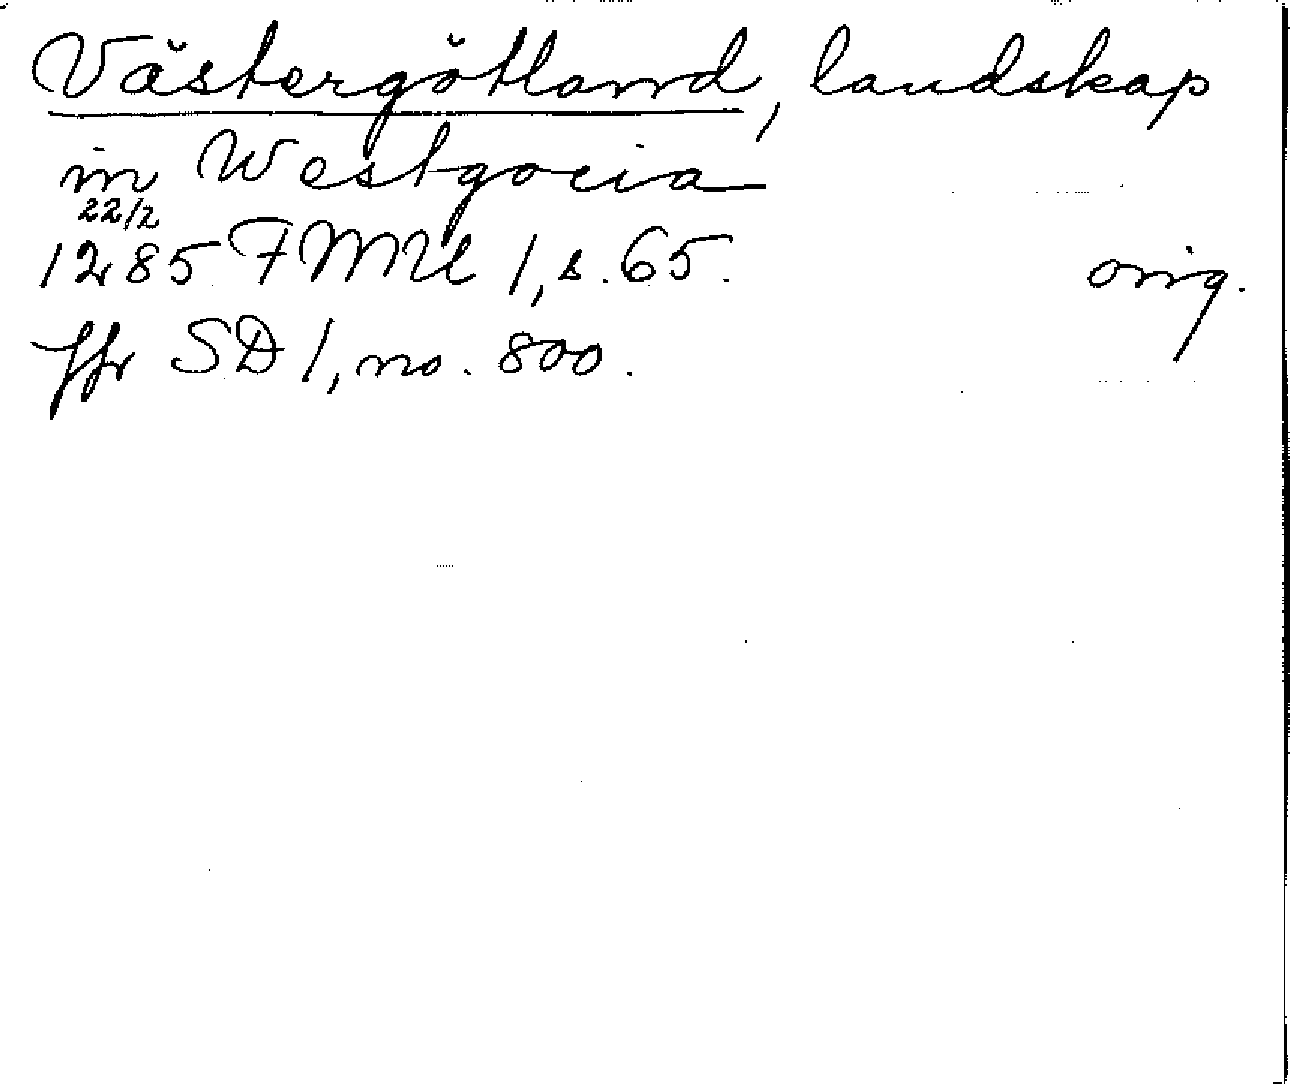 Västergötland, landskap
in Westgocia
22/2
1285 FMU 1, s. 65. orig.
Jfr SD 1, no. 800.